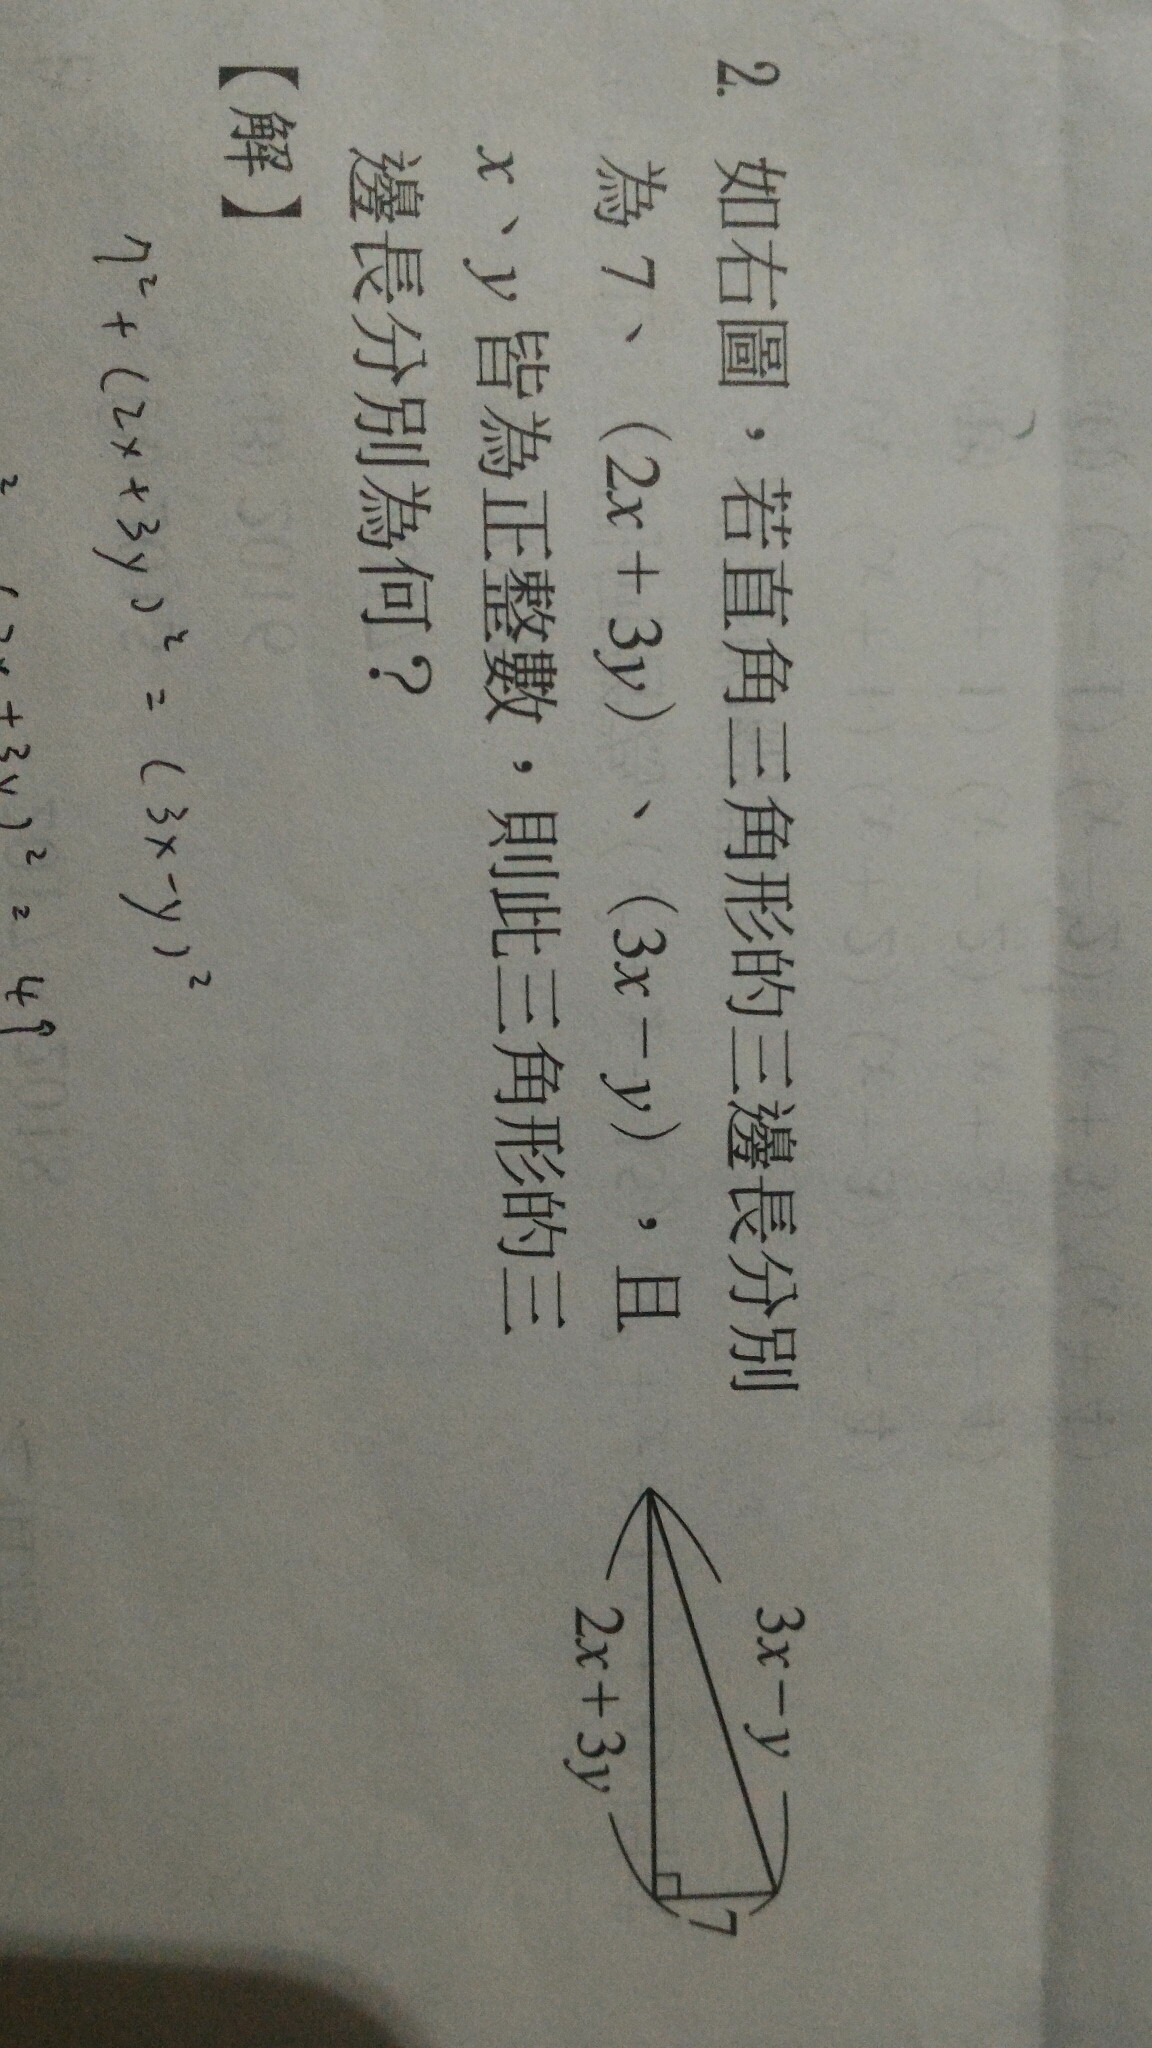 2. 如右圖，若直角三角形的三邊長分別
為 7、(2x+3y)、(3x-y)，且
x、y 皆為正整數，則此三角形的三
邊長分別為何？
3x-y
2x+3y
7
【解】
7²+(2x+3y)²=(3x-y)²
+3y)²=49